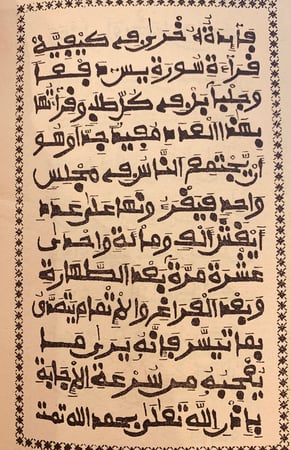 فائدة أخرى في كيفية
قراءة سورة يس دفعا
وجلبا بل في كل طلب وقراءتها
بهذا العدد مفيد جدا وهو
أن يجتمع الناس في مجلس
واحد فيقرءونها على عدد
أيقش ألف ومائة واحدى
عشرة مرة بعد الطهارة
وبعد الفراغ والاتمام يتصدق
بما تيسر فإنه يرى ما
يعجبه من سرعة الإجابة
بإذن الله تعلى بحمد الله تمت